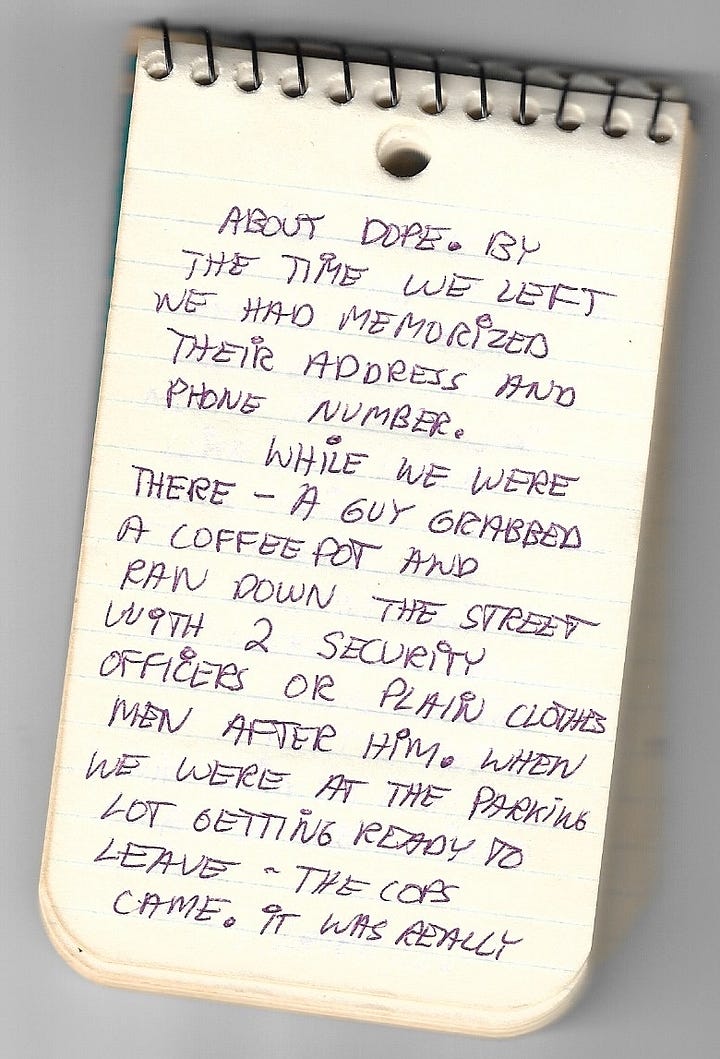 ABOUT DOPE. BY
THE TIME WE LEFT
WE HAD MEMORIZED
THEIR ADDRESS AND
PHONE NUMBER.
WHILE WE WERE
THERE - A GUY GRABBED
A COFFEE POT AND
RAN DOWN THE STREET
WITH 2 SECURITY
OFFICERS OR PLAIN CLOTHES
MEN AFTER HIM. WHEN
WE WERE AT THE PARKING
LOT GETTING READY TO
LEAVE - THE COPS
CAME. IT WAS REALLY